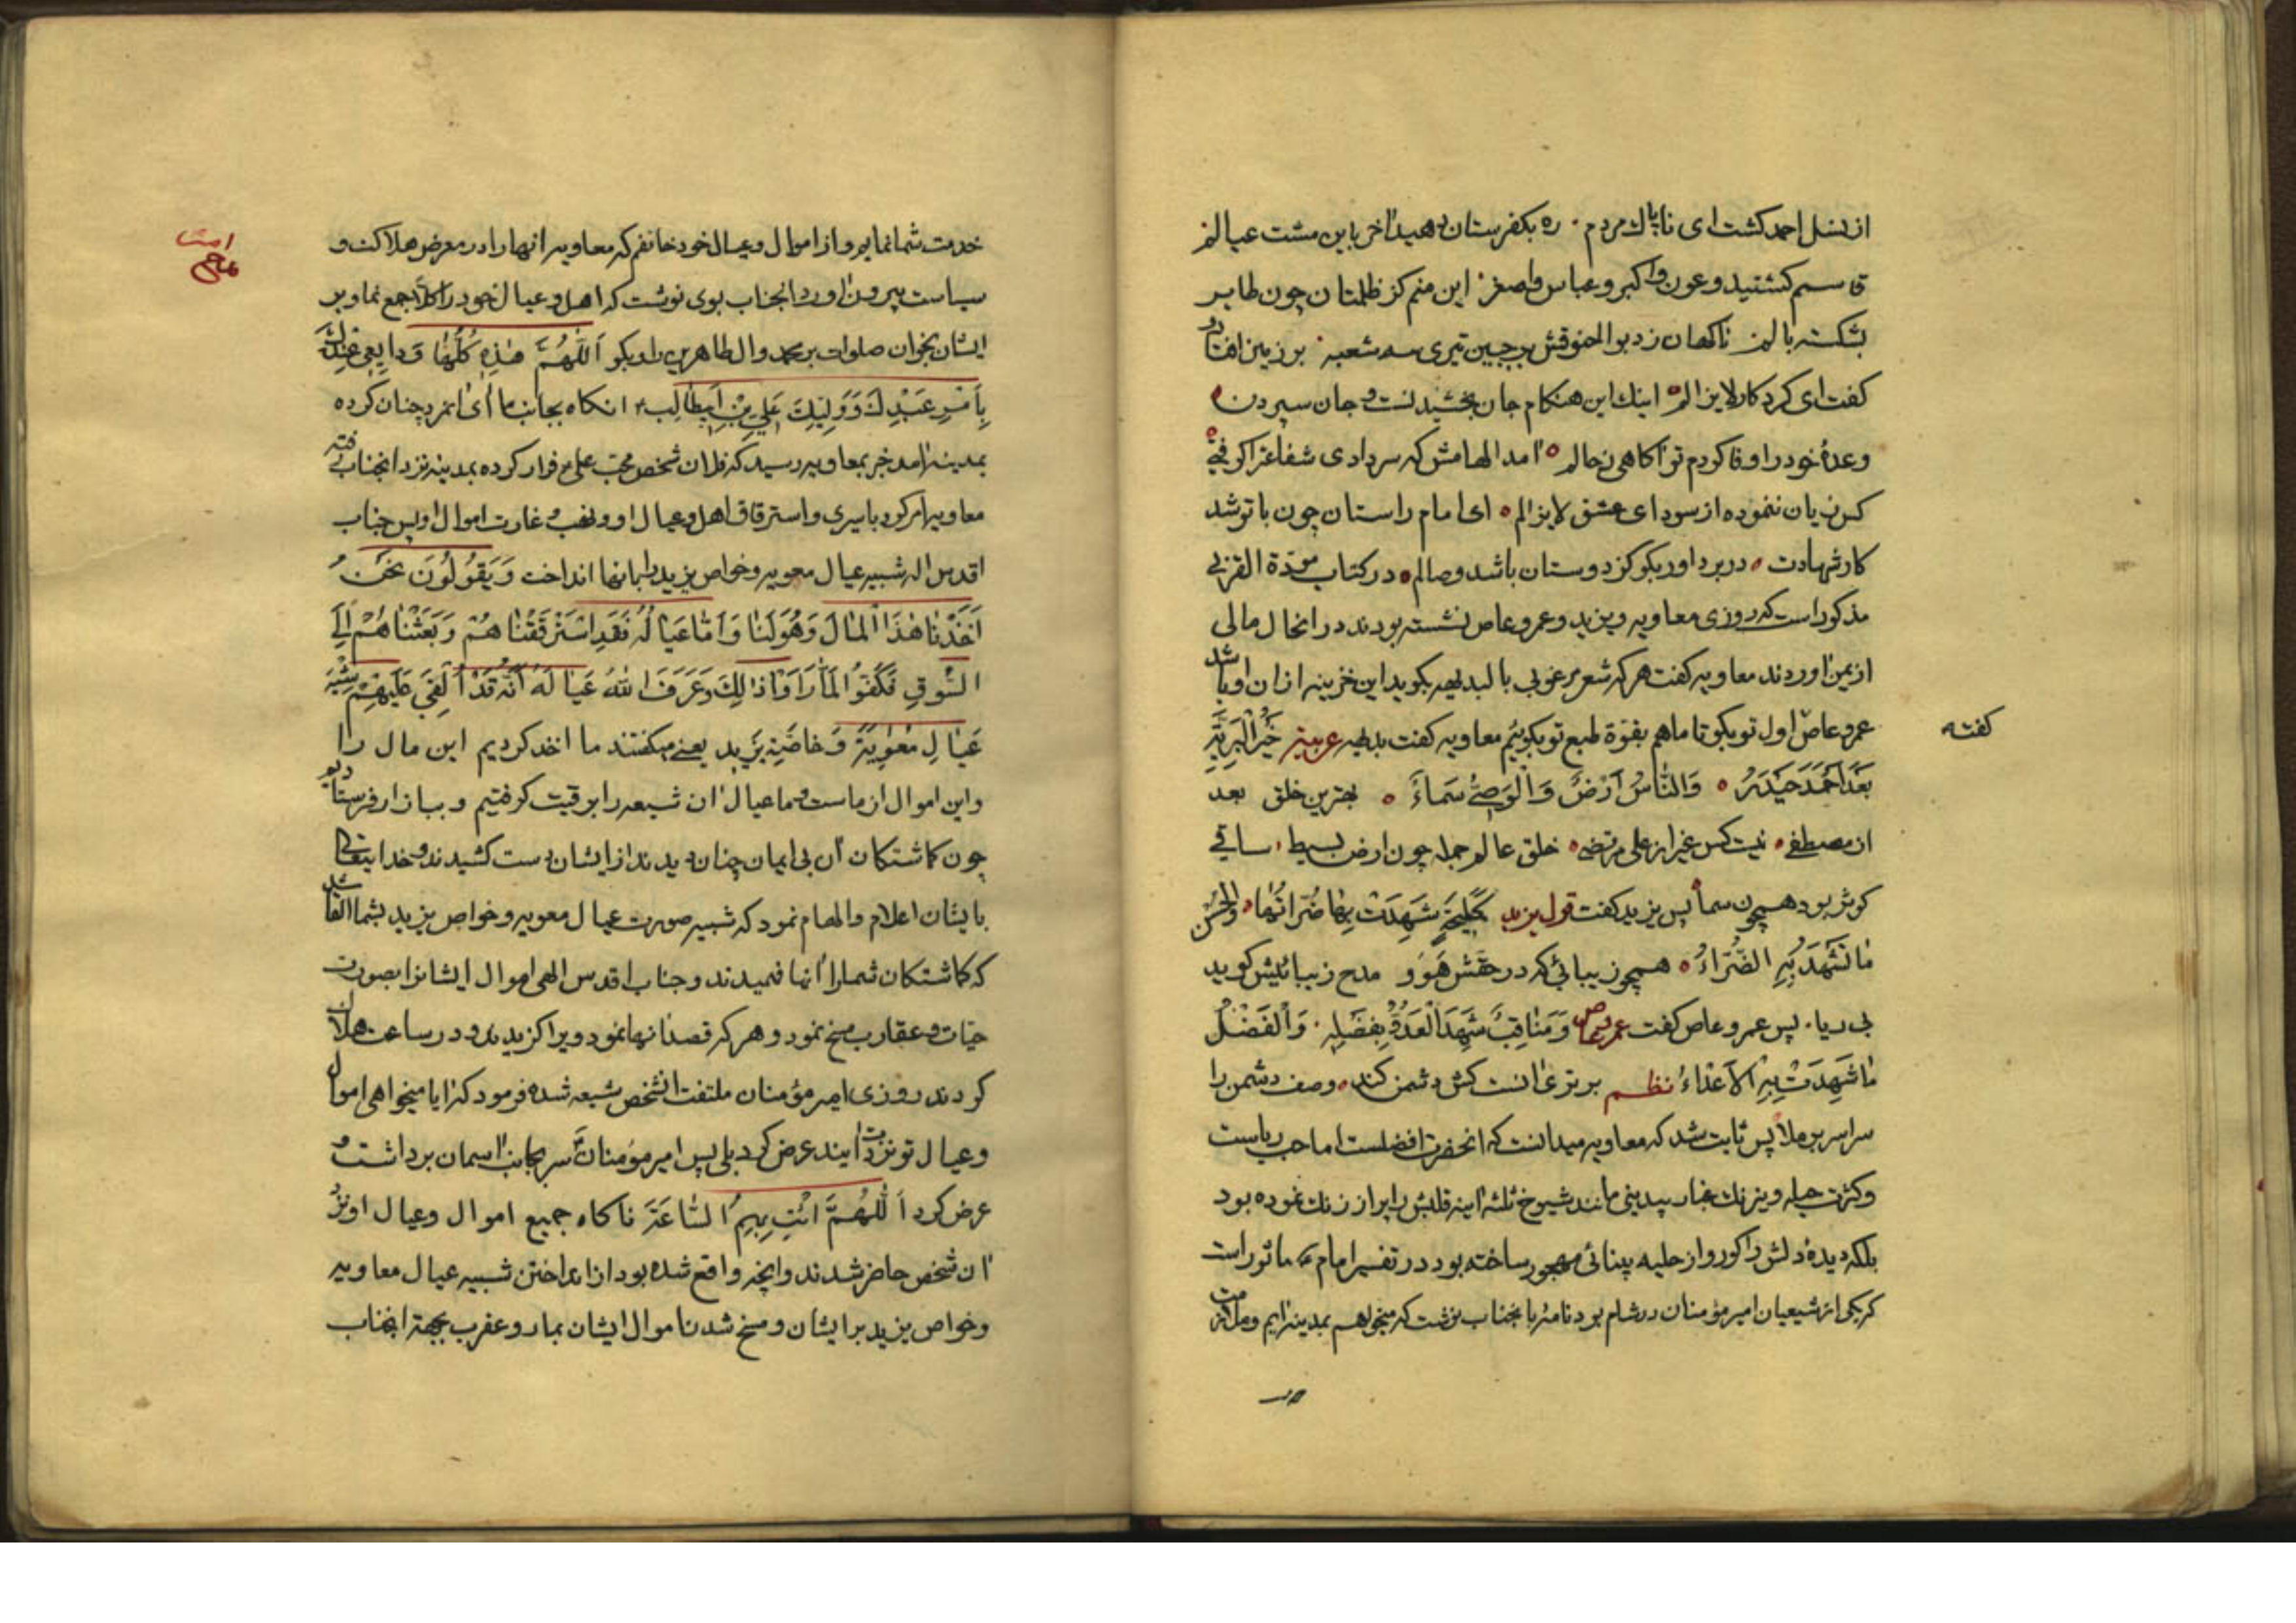 از نسل احمد کشت ای ناپاك مردم ۰ ره بکفرستان دهید آخر باین مشت عیالم
قاسم کشتید و عون و اکبر و عباس و اصغر ۰ این منم کز ظلمتان چون طایر
بشکسته بالم ناکهان زد بو الحنوقش بر جبین تیری سه شعبه ۰ بر زمین افتاد
کفت ای کردکار لا یزالم ۰ اینك این هنکام جان بخشیدنست و جان سپردن
وعدهٔ خود را وفا کردم تو آکاهی ز حالم ۰ آمد الهامش که سر دادی شفاعت
کس زیان ننموده از سودای عشق لا یزالم ۰ ای امام راستان چون با تو شد
کار شهادت ۰ در برد اور بکو کز دوستان باشد وصالم ۰ در کتاب مودّة القربی
مذکور است که روزی معاویه و یزید و عمرو عاص نشسته بودند در انحال مالی
از یمن آوردند معاویه کفت هر که شعر عربی بالبدیهه بکوید این خزینه از ان او باشد
عمرو عاص اول تو بکو تا ما هم بقوّة طبع تو بکوئیم معاویه کفت بدیهه عربیة خَیْرُ الْبَرِیَّةِ
کفته
بَعْدَ اَحْمَدَ حَیْدَرُ ۰ وَالنّاسُ اَرْضٌ وَالْوَصِیُّ سَماءُ ۰ بهترین خلق بعد
از مصطفی ۰ نیست کس غیر از علی مرتضی ۰ خلق عالم جمله چون ارض بسیط ۰ ساقی
کوثر بود همچون سما پس یزید کفت قول یزید کَمَلیحَةٍ شَهِدَتْ بِها ضَرّاتُها ۰ وَالْحُسْنُ
ما تَشْهَدُ بِهِ الضَّرّاءُ ۰ همچو زیبائی که در حقش هَوَو مدح زیبائیش کوید
بی ریا ۰ پس عمرو عاص کفت عمر عاص وَمَناقِبٌ شَهِدَ الْعَدُوُّ بِفَضْلِهِ ۰ وَالْفَضْلُ
ما شَهِدَتْ بِهِ الْاَعْداءُ نظم برتری آنست کش دشمن کند ۰ وصف دشمن را
سراسر بر ملا پس ثابت شد که معاویه میدانست که انحضرت افضلست اما حب ریاست
وکثرت حیله و نیرنك غبار بیدینی مانند شیوخ ثلثه آینه قلبش را پر از زنك نموده بود
بلکه دیدهٔ دلش را کور و از حلیه بینائی مهجور ساخته بود در تفسیر امام ع ماثور است
که یکی از شیعیان امیر مؤمنان در شام بود نامهٔ بانجناب نوشت که میخواهم بمدینه آیم و ملازمت
خدمت شما نمایم و از اموال و عیال خود خائفم که معاویه آنها را در معرض هلاکت و
سیاست بیرون آورد آنجناب بوی نوشت که اهل و عیال خود را کلّا جمع نما و بر
ایشان بخوان صلوات بر محمد وال طاهرین را و بکو اَللّهُمَّ هٰذِهِ کُلُّهٰا وَدایِعی عِنْدَكَ
بِاَمْرِ عَبْدِكَ وَوَلِیِّكَ عَلِیِّ بْنِ اَبیطٰالِبٍ ۰ انکاه بجانب ما آی آنمرد چنان کرده
بمدینه آمد خبر بمعاویه رسید که فلان شخص محبّ علی ع فرار کرده بمدینه نزد آنجناب رفته
معاویه امر کرد باسیری و استرقاق اهل و عیال او و نهب و غارت اموال او پس جناب
اقدس اله شبیه عیال معویه و خواص یزید را بانها انداخت وَیَقُولُونَ نَحْنُ
اَخَذْنٰا هٰذَا الْمٰالَ وَهُوَلَنٰا وَاَمّٰا عَیٰالُهُ فَقَدِ اسْتَرْقَقْنٰاهُمْ وَبَعَثْنٰاهُمْ اِلَی
السُّوقِ فَکَفُّوا لَمّٰا رَاَوْا ذٰلِكَ وَعَرَّفَ اللهُ عَیٰالَهُ اَنَّهُ قَدْ اَلْقیٰ عَلَیْهِمْ شِبْهَ
عَیٰالِ مُعٰوِیَةَ وَخاصَّةِ یَزیدِ یعنی میکفتند ما اخذ کردیم این مال را
واین اموال از ماست و ما عیال ان شیعه را برقیت کرفتیم و ببازار فرستادیم
چون کماشتکان آن بی ایمان چنان دیدند از ایشان دست کشیدند و خدا یتعالی
بایشان اعلام و الهام نمود که شبیه صورت عیال معویه و خواص یزید بشما القا شد
که کماشتکان شما را آنها فهمیدند و جناب اقدس الهی اموال ایشانرا بصورت
حیّات و عقارب مسخ نمود و هر که قصد آنها نمود ویرا کزیدند و در ساعت هلاك
کردند روزی امیر مؤمنان ملتفت آنشخص شیعه شده فرمود که آیا میخواهی اموال
وعیال تو نزدت آیند عرض کرد بلی پس امیر مؤمنان سر بجانب آسمان برداشت و
عرض کرد اَللّهُمَّ ائْتِ بِهِمُ السّٰاعَةَ ناکاه جمیع اموال و عیال او نزد
آن شخص حاضر شدند وانچه واقع شده بود از انداختن شبیه عیال معاویه
وخواص یزید بر ایشان و مسخ شدن اموال ایشان بمار و عقرب بجهة آنجناب